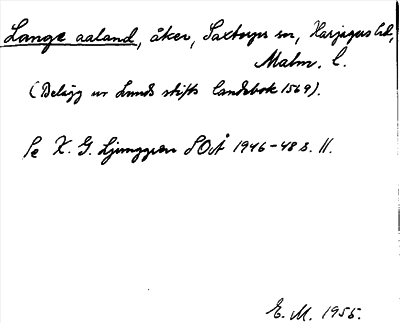 Lange aaland, åker, Saxtorps sn, Harjagers hd,
Malm. l.
(Belägg ur Lunds stifts landebok 1569).
Se K. G. Ljunggren SOÅ 1946-48 s. 11.
E. M. 1955.